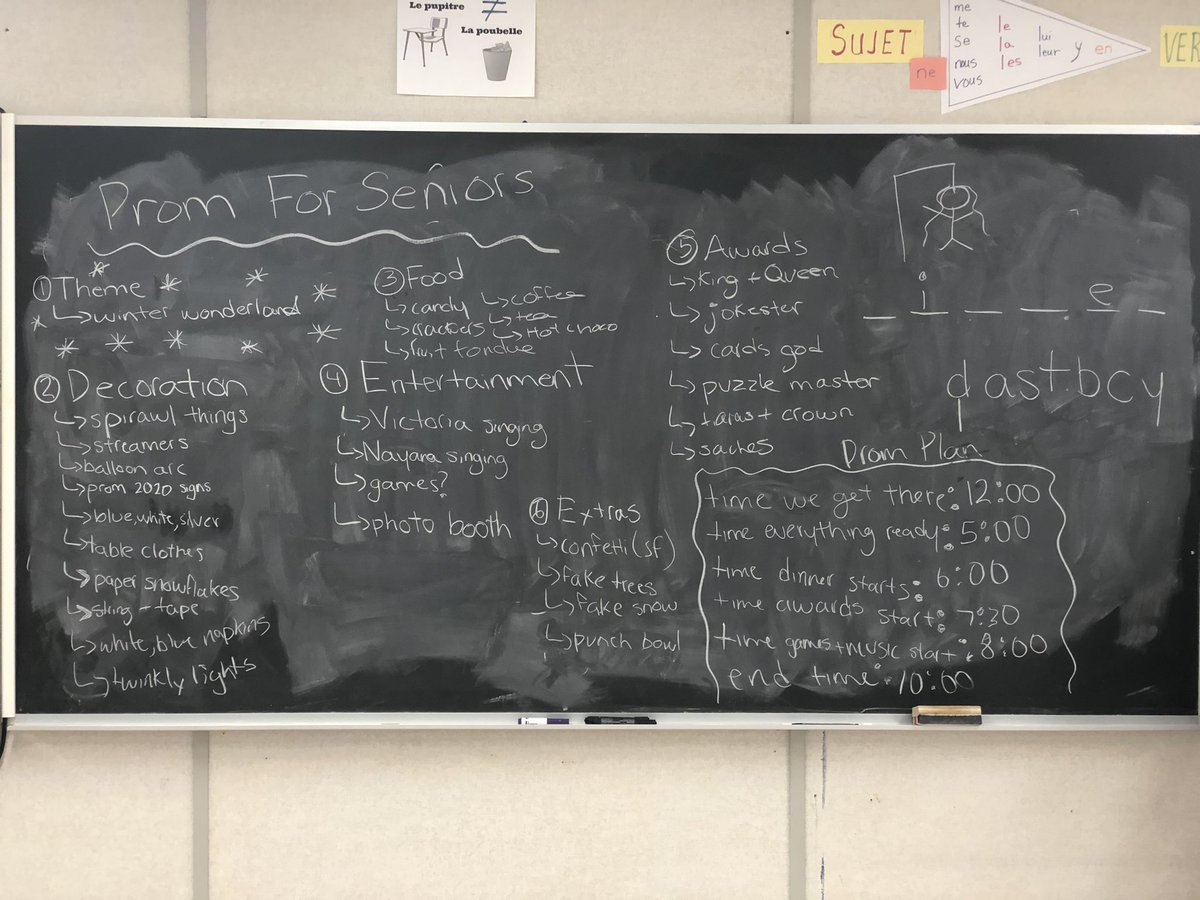 Le pupitre ≠
La poubelle
SUJET
ne
me
te
se
nous
vous
le
la
les
lui
leur
y
en
VER
Prom For Seniors
① Theme
↳ winter wonderland
② Decoration
↳ spirawl things
↳ streamers
↳ balloon arc
↳ prom 2020 signs
↳ blue, white, silver
↳ table clothes
↳ paper snowflakes
↳ string - tape
↳ white, blue napkins
↳ twinkly lights
③ Food
↳ candy
↳ crackers
↳ fruit fondue
↳ coffee
↳ tea
↳ Hot choco
④ Entertainment
↳ Victoria singing
↳ Nayara singing
↳ games?
↳ photo booth
⑥ Extras
↳ confetti (sf)
↳ fake trees
↳ fake snow
↳ punch bowl
⑤ Awards
↳ King + Queen
↳ jokester
↳ cards god
↳ puzzle master
↳ tiaras + crown
↳ saches
_ i _ _ e _
d a s t b c y
Prom Plan
time we get there: 12:00
time everything ready: 5:00
time dinner starts: 6:00
time awards start: 7:30
time games + music start: 8:00
end time: 10:00